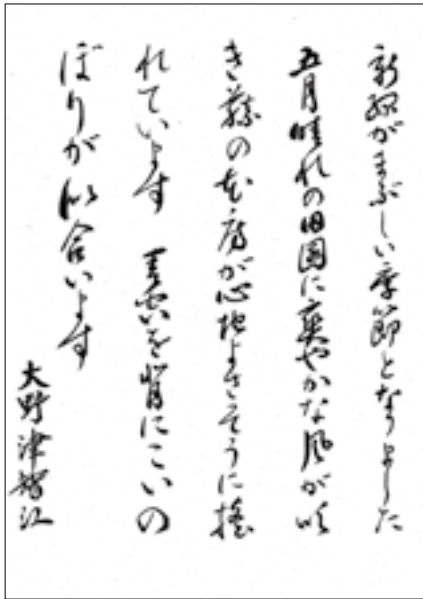 新緑がまぶしい季節となりました
五月晴れの田園に爽やかな風が吹
き藤の花房が心地よさそうに揺
れています 青空を背にこいの
ぼりが似合います
大野津智江